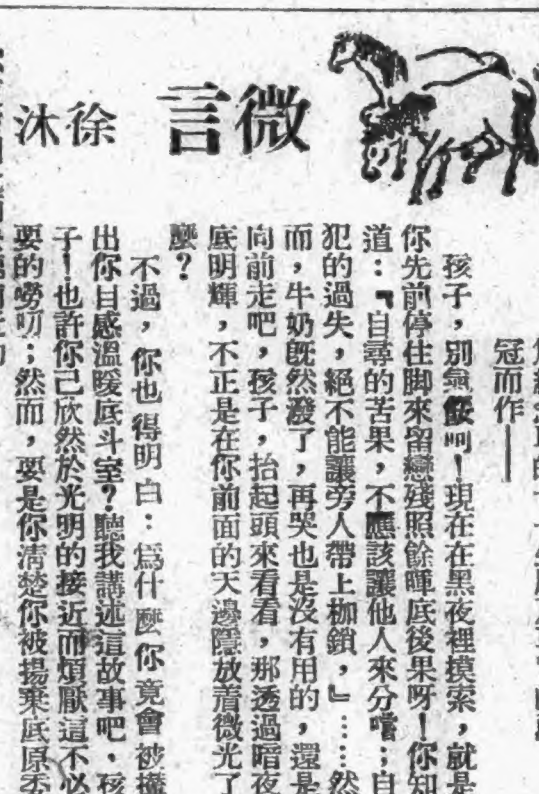 微言
徐沐
冠而作——
孩子，別氣餒呵！現在在黑夜裡摸索，就是
你先前停住脚來留戀殘照餘暉底後果呀！你知
道：『自尋的苦果，不應該讓他人來分嚐；自
犯的過失，絕不能讓旁人帶上枷鎖，』……然
而，牛奶既然潑了，再哭也是沒有用的，還是
向前走吧，孩子，抬起頭來看看，那透過暗夜
底明輝，不正是在你前面的天邊隱放着微光了
麼？
不過，你也得明白：爲什麼你竟會被攆
出你自感溫暖底斗室？聽我講述這故事吧，孩
子！也許你已欣然於光明的接近而煩厭這不必
要的嘮叨；然而，要是你淸楚你被揚棄底原委